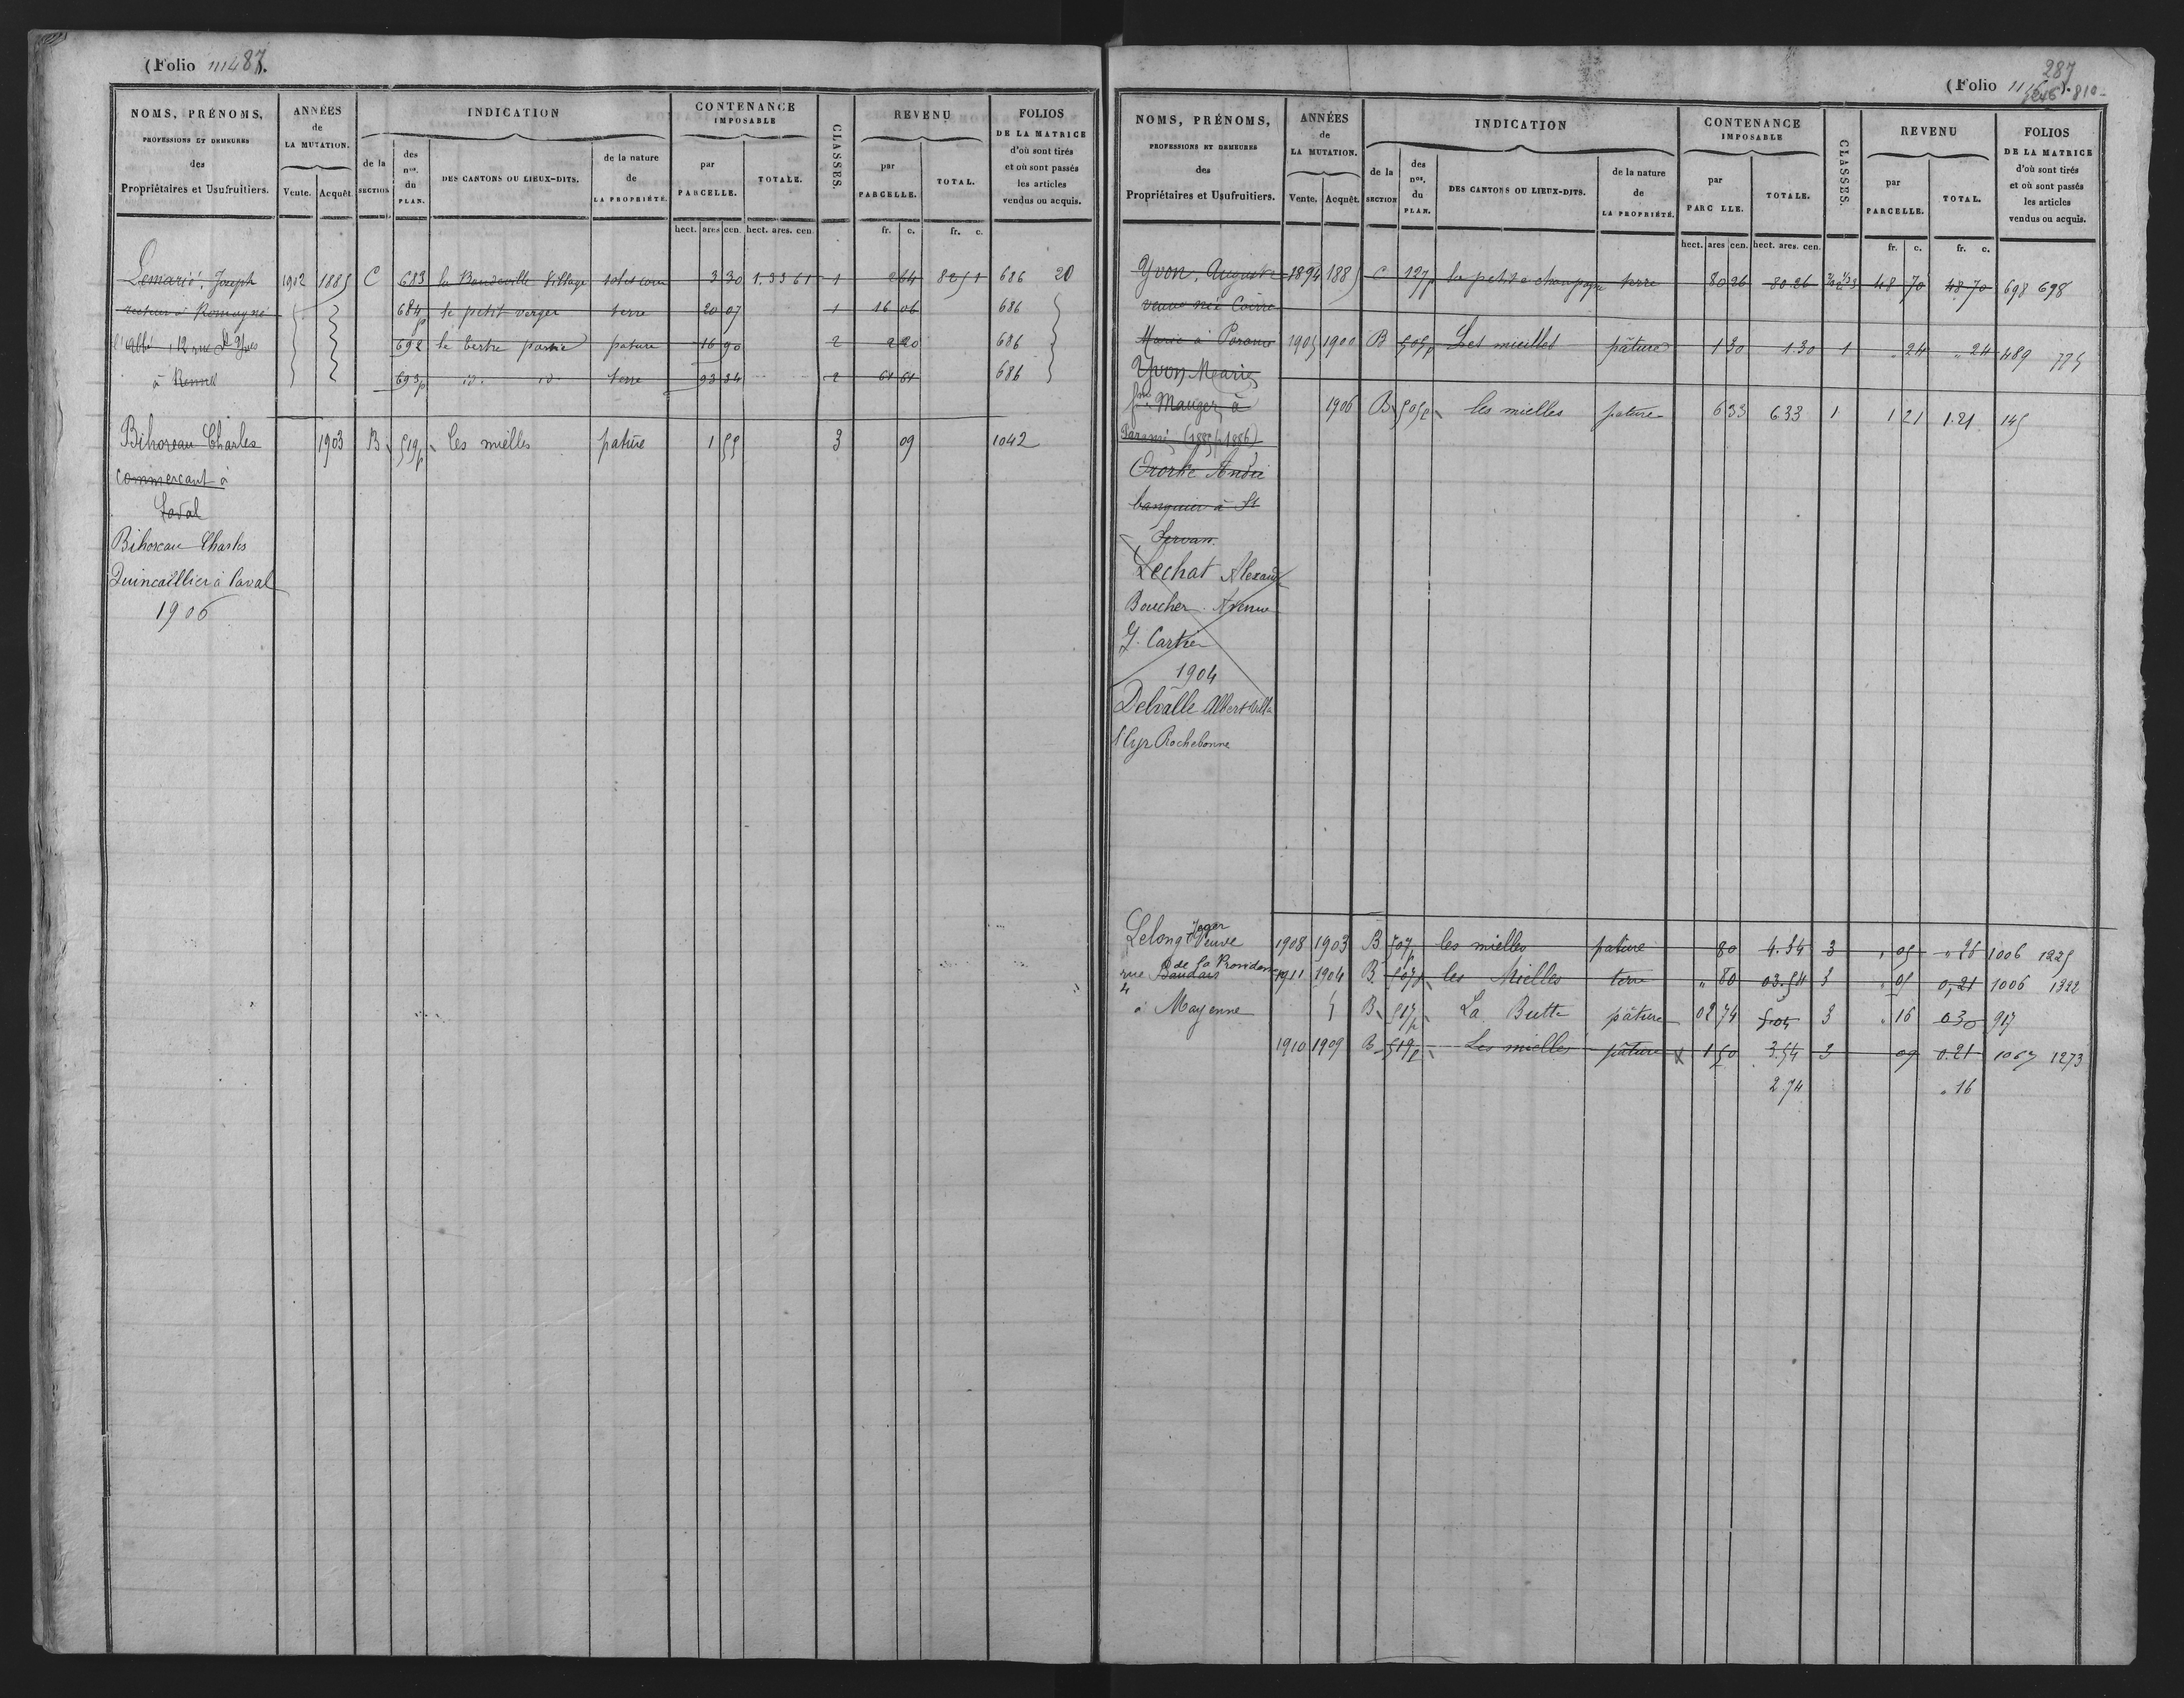 (Folio 111487.
NOMS, PRÉNOMS,
PROFESSIONS ET DEMEURES
des
Propriétaires et Usufruitiers.
ANNÉES
de
LA MUTATION.
Vente. Acquêt.
INDICATION
de la
SECTION
des
nos.
du
PLAN.
DES CANTONS OU LIEUX-DITS.
de la nature
de
LA PROPRIÉTÉ.
CONTENANCE
IMPOSABLE
par
PARCELLE.
TOTALE.
CLASSES.
REVENU
par
PARCELLE.
TOTAL.
FOLIOS
DE LA MATRICE
d'où sont tirés
et où sont passés
les articles
vendus ou acquis.
hect. ares cen. hect. ares. cen. fr. c. fr. c.
Lemarié, Joseph 1902 1885 C 683 la Baudeville Village sol et cour 3 30 1.33 61 1 2 64 82 51 686 20
recteur à Romagné 684p le petit verger terre 20 07 1 16 06 686
l'abbé, 12 rue St Yves 692 le tertre partie pature 16 90 2 2 20 686
à Rennes 693p id. id. terre 93 34 2 61 61 686
Bihoreau Charles 1903 B 519p les mielles pature 1 55 3 09 1042
commerçant à
Laval
Bihoreau Charles
Quincaillier à Laval
1906
287
(Folio 1116).
810
NOMS, PRÉNOMS,
PROFESSIONS ET DEMEURES
des
Propriétaires et Usufruitiers.
ANNÉES
de
LA MUTATION.
Vente. Acquêt.
INDICATION
de la
SECTION
des
nos.
du
PLAN.
DES CANTONS OU LIEUX-DITS.
de la nature
de
LA PROPRIÉTÉ.
CONTENANCE
IMPOSABLE
par
PARC LLE.
TOTALE.
CLASSES.
REVENU
par
PARCELLE.
TOTAL.
FOLIOS
DE LA MATRICE
d'où sont tirés
et où sont passés
les articles
vendus ou acquis.
hect. ares cen. hect. ares. cen. fr. c. fr. c.
Yvon, Auguste 1894 1885 C 127p la petite champagne terre 80 26 80 26 48 70 48 70 698 698
veuve née
Marie à Paramé 1905 1900 B 505p Les mielles pâture 1 30 1.30 1 " 24 " 24 489 775
Yvon Marie
fme Mauger à 1906 B 505p les mielles pature 6 33 6 33 1 1 21 1.21 145
Paramé (1885/1886)
Ororke André
banquier à St
Servan.
Lechat Alexandre
Boucher Avenue
J. Cartier
1904
Delvalle Albert villa
St Cyr Rochebonne
Lelong Veuve 1908 1903 B 507p les mielles pature 80 4.34 3 " 05 " 26 1006 1225
rue de la Providence 1911 1904 B 507p les Mielles terre " 80 03.54 3 " 05 0,21 1006 1322
4
à Mayenne B 517p La Butte pâture 02 74 5.04 3 " 16 0 30 917
1910 1909 B 519p Les mielles pâture x 1 50 3.54 3 09 0.21 1067 1273
2.74 " 16